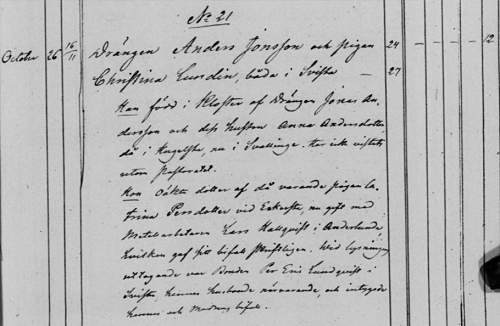 No 21
October 26 16/11 Drängen Anders Jonsson och pigan 24 — — — — 12
Christina Lundin, båda i Svista — 27
Han född i Kloster af Drängen Jonas An-
dersson och dess hustru Anna Andersdotter,
då i Hugelsta, nu i Svallinge. Har icke vistats
utom pastoratet.
Hon Oäkta dotter af då varande pigan Ca-
trina Persdotter vid Eckersta, nu gift med
Metallarbetaren Lars Hallquist i Anderlunda,
hvilken gaf sitt bifall skriftligen. Wid lysnings
uttagande var Bonden Per Eric Lundquist i
Svista, hennes husbonde närvarande, och intygade
hennes och Modrens bifall.